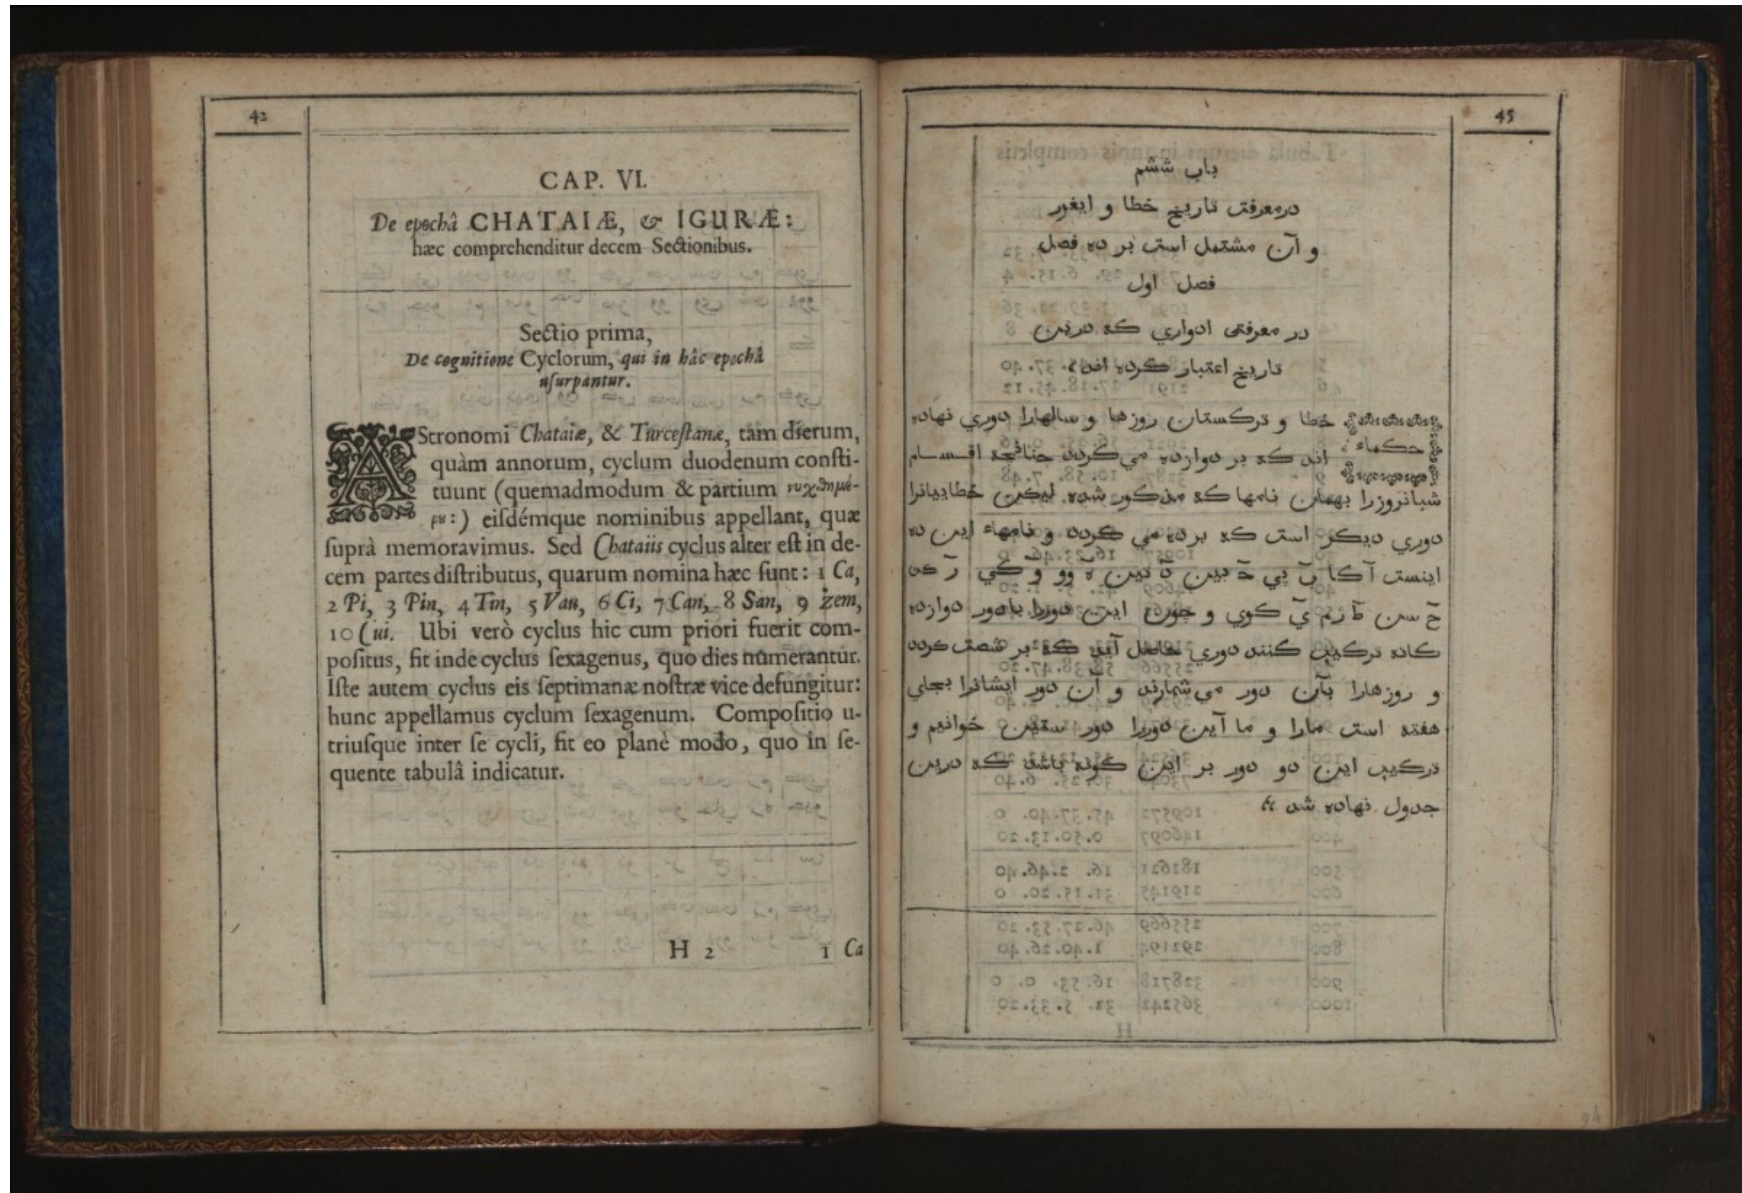 42
CAP. VI.
De epochâ CHATAIÆ, & IGURÆ:
hæc comprehenditur decem Sectionibus.
Sectio prima,
De cognitione Cyclorum, qui in hâc epochâ
usurpantur.
AStronomi Chataiæ, & Turcestanæ, tàm dierum,
quàm annorum, cyclum duodenum consti-
tuunt (quemadmodum & partium νυχθημέ-
ρυ:) eisdémque nominibus appellant, quæ
suprà memoravimus. Sed Chataiis cyclus alter est in de-
cem partes distributus, quarum nomina hæc sunt: 1 Ca,
2 Pi, 3 Pin, 4 Tin, 5 Vau, 6 Ci, 7 Can, 8 San, 9 Zem,
10 Cui. Ubi verò cyclus hic cum priori fuerit com-
positus, fit inde cyclus sexagenus, quo dies numerantur.
Iste autem cyclus eis septimanæ nostræ vice defungitur:
hunc appellamus cyclum sexagenum. Compositio u-
triusque inter se cycli, fit eo planè modo, quo in se-
quente tabulâ indicatur.
H 2 1 Ca
45
باب ششم
در معرفت تاريخ خطا و ايغور
و آن مشتمل است بر ده فصل
فصل اول
در معرفتى ادواري كه درين
تاريخ اعتبار كرده اند
حكماء خطا و تركستان روزها و سالهارا دوري نهاده
اند كه بر دوازده مي كردد چنانچه اقسام
شبانروزرا بهمان نامها كه مذكور شده ليكن خطاييانرا
دوري ديكر است كه بر ده مي كردد و نامهاء اين ده
اينست آ كا ب پي ج بين د تين ه وو و كي ز كن
ح سن ط زم ي كوي و چون اين دوررا بادور دوازده
كانه تركيب كنند دوري حاصل آيد كه بر شصت كردد
و روزهارا بآن دور مي شمارند و آن دور ايشانرا بجاي
هفته است مارا و ما آين دوررا دور ستين خوانيم و
تركيب اين دو دور بر اين كونه باشد كه درين
جدول نهاده شد